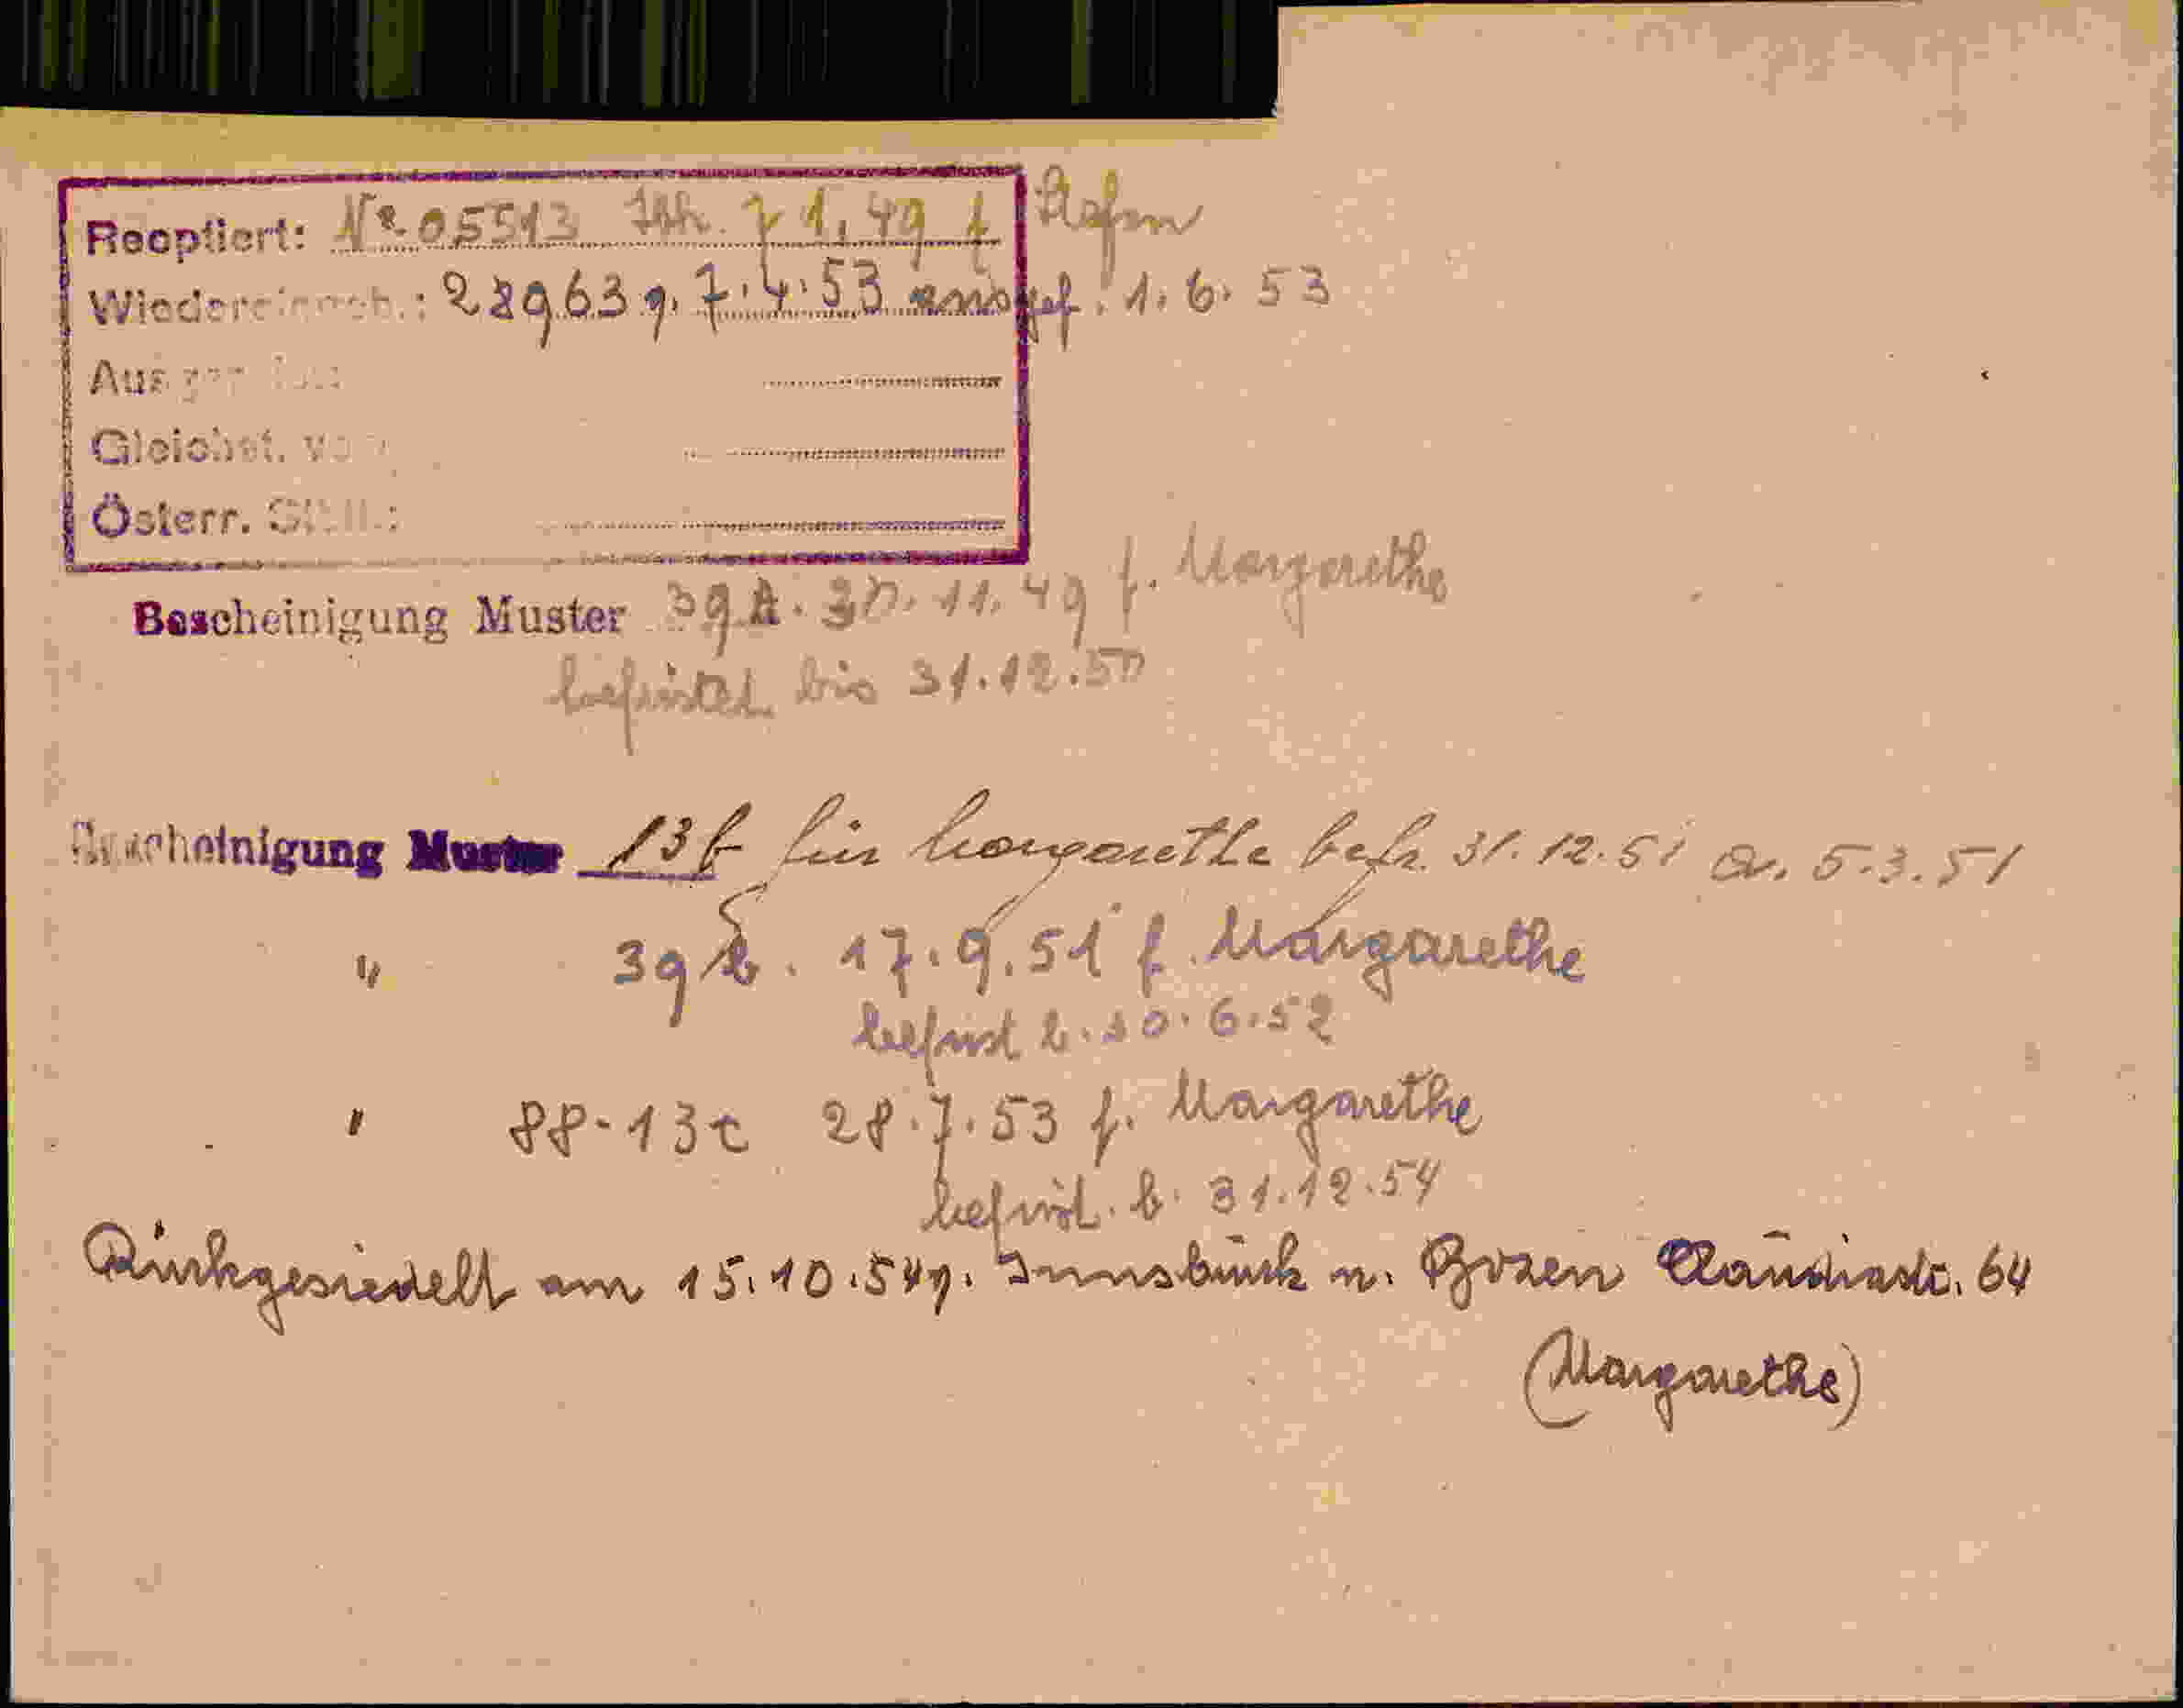 Reoptiert: No 05513 Ibk. 7 1.49 f Stefan
Wiedereinreb.: 28963 v. 7.4.53 ausgef. 1.6.53
Ausger
Gleichst. vo
Österr.
Bescheinigung Muster 39 A. 30.11.49 f. Margarethe
befristet bis 31.12.50
Bescheinigung Muster 13b für Margarethe befr. 31.12.51 a. 5.3.51
" 39 b. 17.9.51 f. Margarethe
befrist b. 30.6.52
" 88-13c 28.7.53 f. Margarethe
befrist. b. 31.12.54
Rückgesiedelt am 15.10.54 v. Innsbruck n. Bozen Claudiastr. 64
(Margarethe)